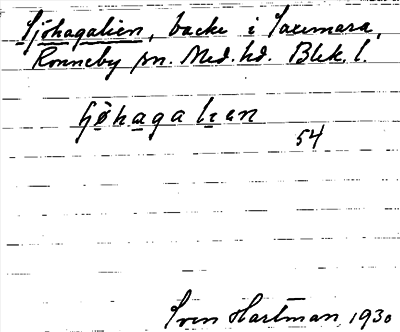 Sjöhagalien, backe i Saxemara,
Ronneby sn. Med. hd. Blek. l.
ɧøhagalıan
54
Sven Hartman, 1930